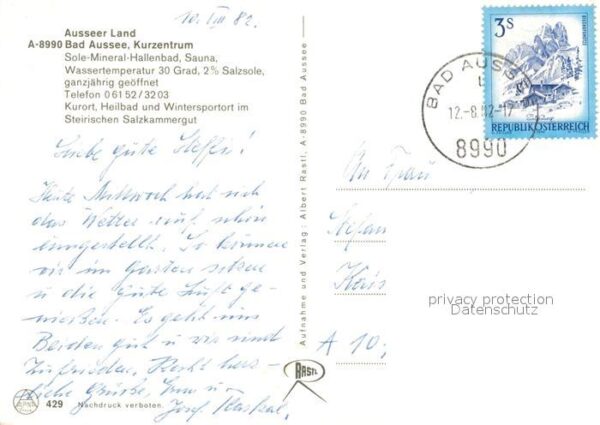 10. VIII 82.
Ausseer Land
A-8990 Bad Aussee, Kurzentrum
Sole-Mineral-Hallenbad, Sauna,
Wassertemperatur 30 Grad, 2% Salzsole,
ganzjährig geöffnet
Telefon 0 61 52 / 32 03
Kurort, Heilbad und Wintersportort im
Steirischen Salzkammergut
Liebe gute Steffi!
Heute Mittwoch hat sich
das Wetter auf schön
eingestellt. So können
wir im Garten sitzen
u die gute Luft ge-
nießen. Es geht uns
Beiden gut u wir sind
zufrieden. Recht herz-
liche Grüsse,
Josef
429 Nachdruck verboten.
Aufnahme und Verlag: Albert Rastl, A-8990 Bad Aussee
RASTL
3S
REPUBLIK ÖSTERREICH
BAD AUSSEE
12.-8.82-17
8990
An Frau
Stefan
A 10,
privacy protection
Datenschutz